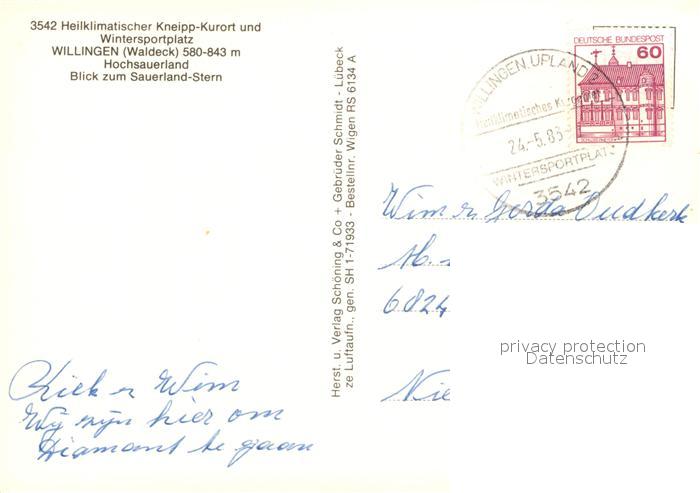 3542 Heilklimatischer Kneipp-Kurort und
Wintersportplatz
WILLINGEN (Waldeck) 580-843 m
Hochsauerland
Blick zum Sauerland-Stern
Herst. u. Verlag Schöning & Co + Gebrüder Schmidt - Lübeck
ze Luftaufn., gen. SH 1-71933 - Bestellnr. Wigen RS 6134 A
DEUTSCHE BUNDESPOST
60
WILLINGEN, UPLAND
Heilklimatisches
24.-5.85
WINTERSPORTPLATZ
3542
Wim en Gerda Oudkerk
6824
Nie
privacy protection
Datenschutz
en Wim
Wij zijn hier om
Diamant te gaan